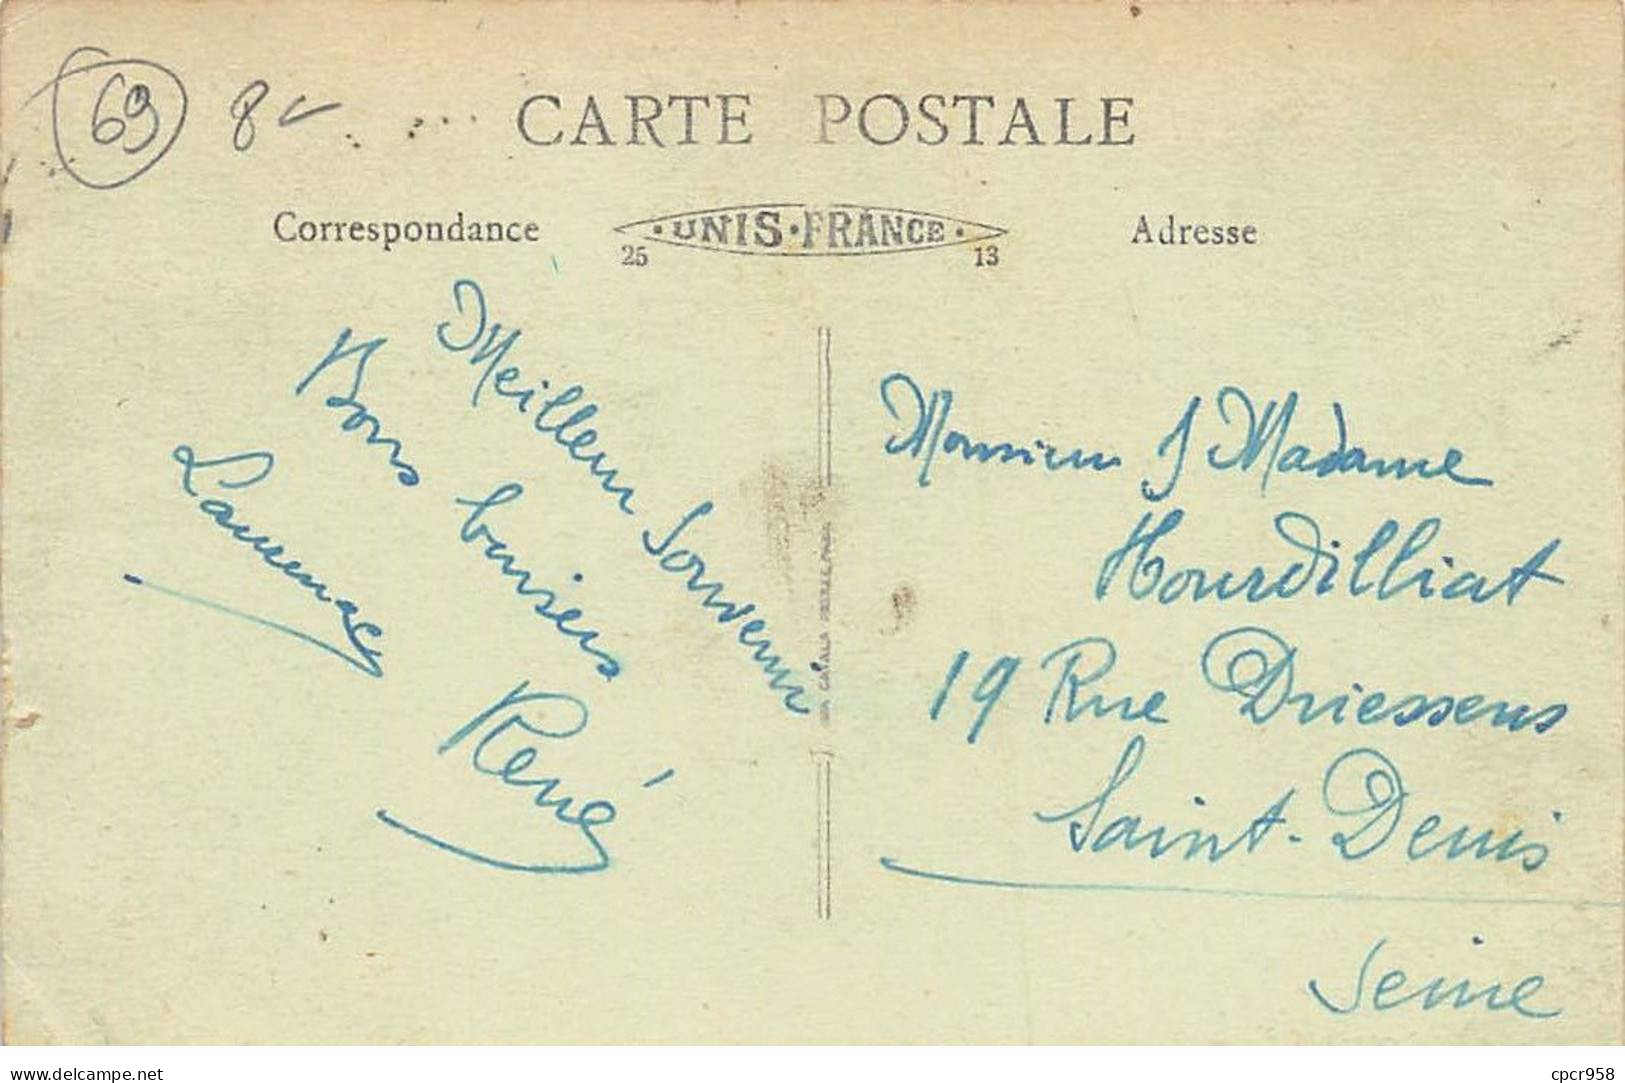 69 8
CARTE POSTALE
Correspondance
UNIS·FRANCE
25 13
Adresse
Meilleur Souvenir
Bons baisers
René
Monsieur & Madame
Hourdilliat
19 Rue Driessens
Saint-Denis
Seine
www.delcampe.net
cpcr958